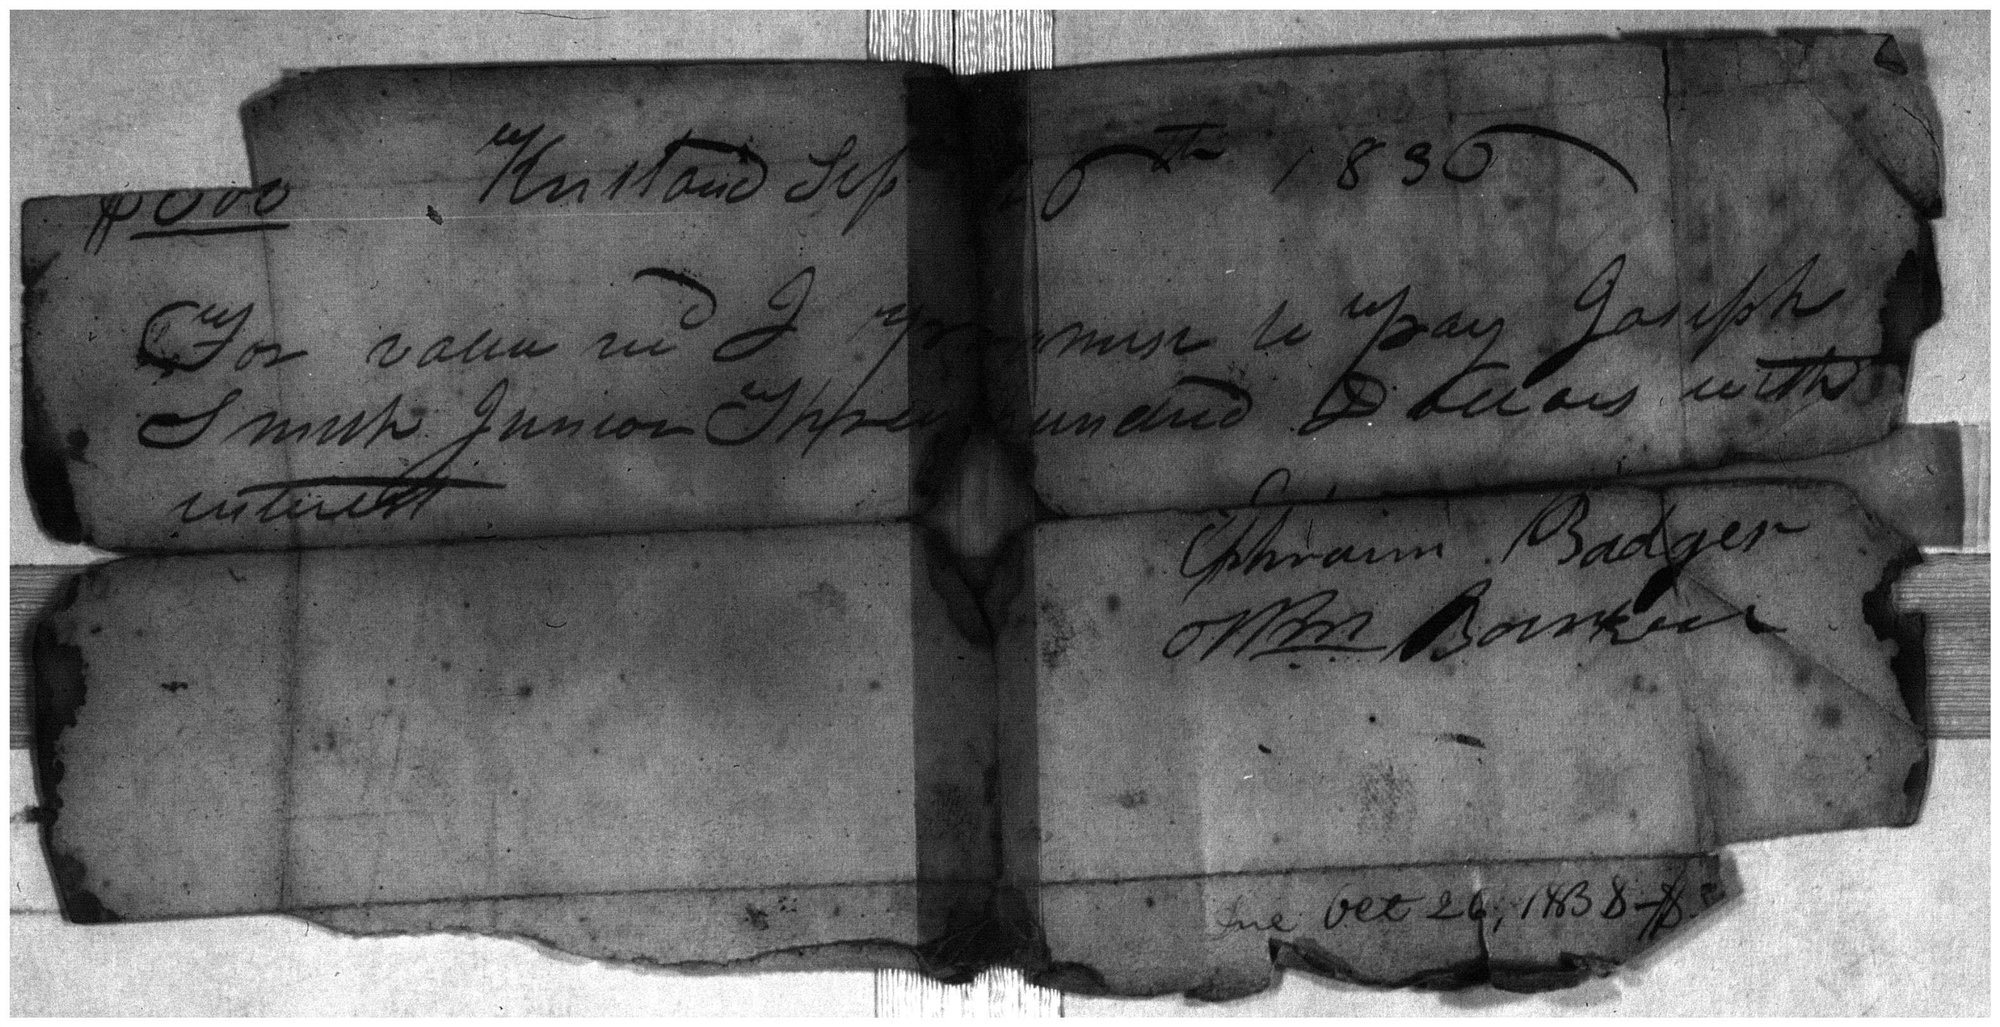 $300 Kirtland Sep 26th 1836
For value recd I promise to pay Joseph
Smith Junior Three hundred Dollars with
interest
Ephraim Badger
Wm Barker
Due Oct 26, 1838 - $